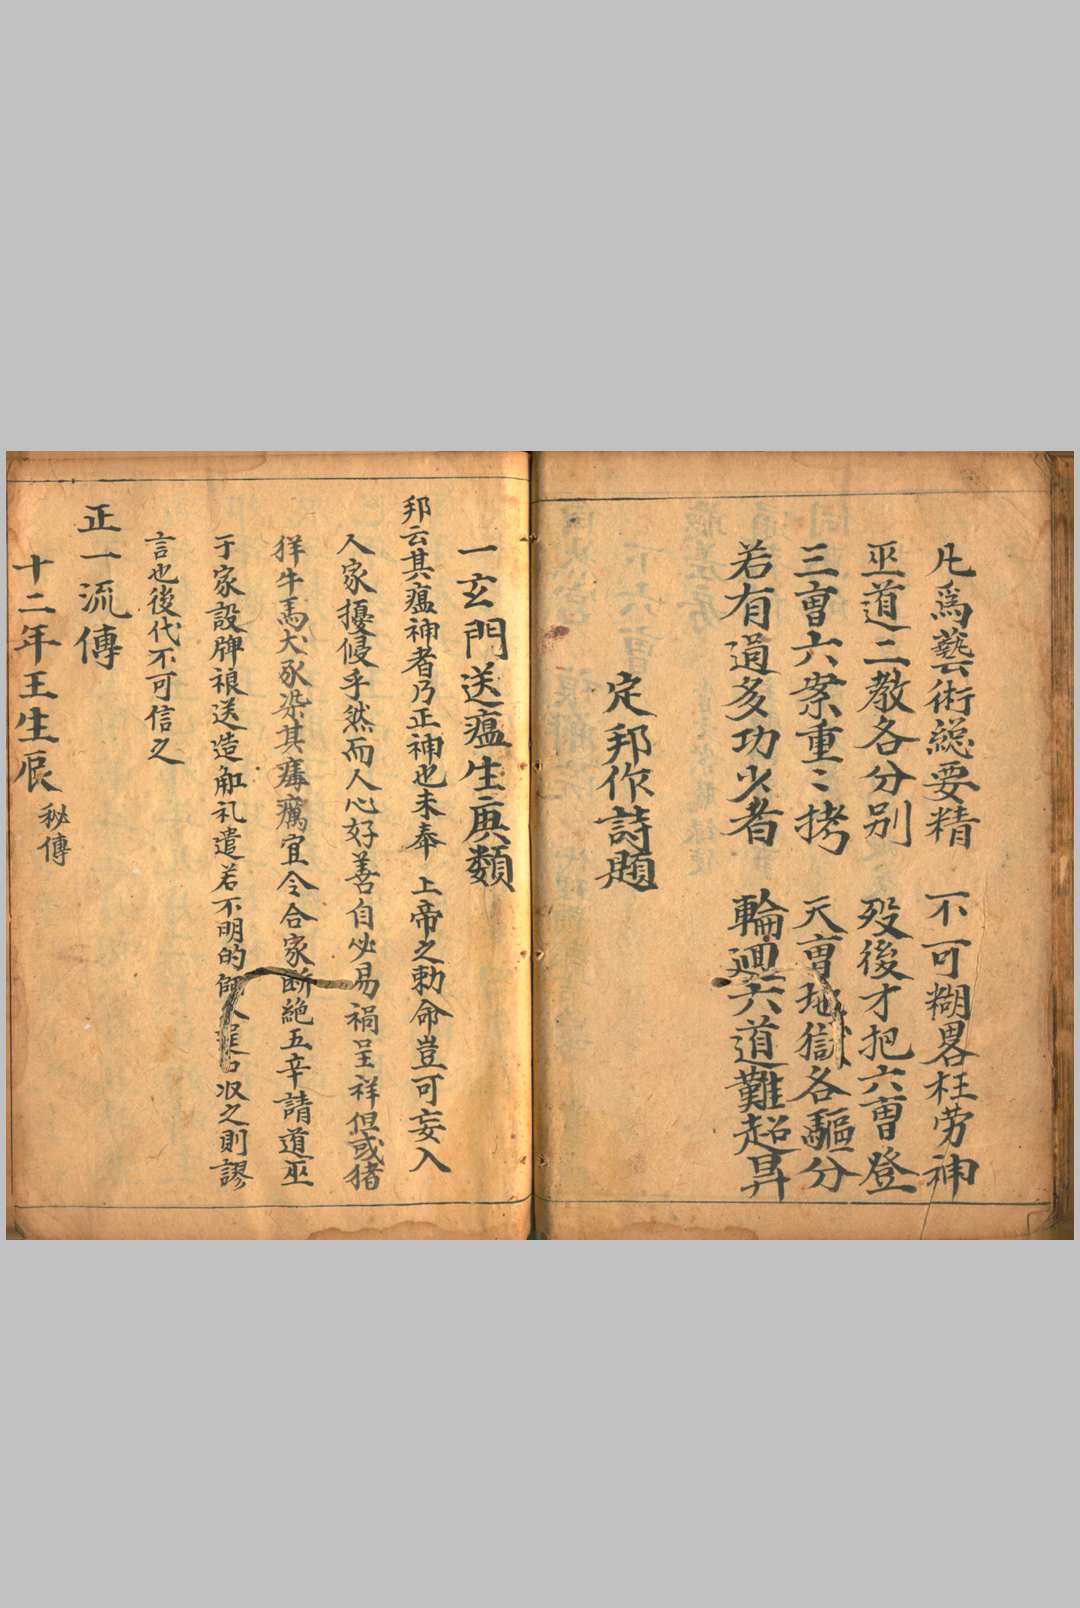 凢爲藝術緫要精　不可糊畧枉劳神
巫道二教各分别　殁後才把六曹登
三曹六案重〻拷　天曹地獄各驅分
若有道多功少者　輪廻六道難超昇
定邦作詩題
一玄門送瘟生庾類
邦云其瘟神者乃正神也未奉　上帝之勅命豈可妄入
人家擾侵乎然而人心好善自必易禍呈祥但或猪
羊牛馬犬豕染其瘼癘宜令合家断絶五辛請道巫
于家設牌禳送造舡礼遣若不明的師収之則謬
言也後代不可信之
正一流傳
十二年王生辰　秘傳